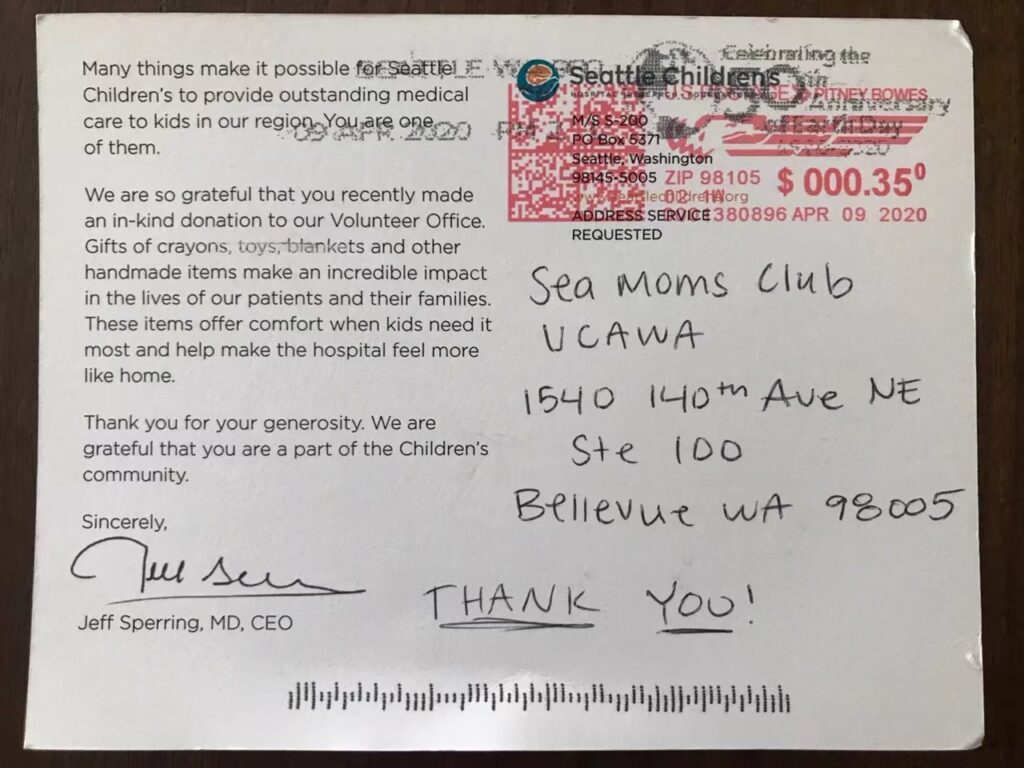 Many things make it possible for Seattle
Children's to provide outstanding medical
care to kids in our region. You are one
of them.
We are so grateful that you recently made
an in-kind donation to our Volunteer Office.
Gifts of crayons, toys, blankets and other
handmade items make an incredible impact
in the lives of our patients and their families.
These items offer comfort when kids need it
most and help make the hospital feel more
like home.
Thank you for your generosity. We are
grateful that you are a part of the Children's
community.
Sincerely,
Jeff Sperring, MD, CEO
09 APR 2020 PM
Celebrating the
50th
Anniversary
of Earth Day
Seattle Children's
M/S S-200
PO Box 5371
Seattle, Washington
98145-5005
ADDRESS SERVICE
REQUESTED
U.S. POSTAGE PITNEY BOWES
ZIP 98105
$ 000.35⁰
380896 APR 09 2020
Sea Moms Club
UCAWA
1540 140th Ave NE
Ste 100
Bellevue WA 98005
THANK YOU!